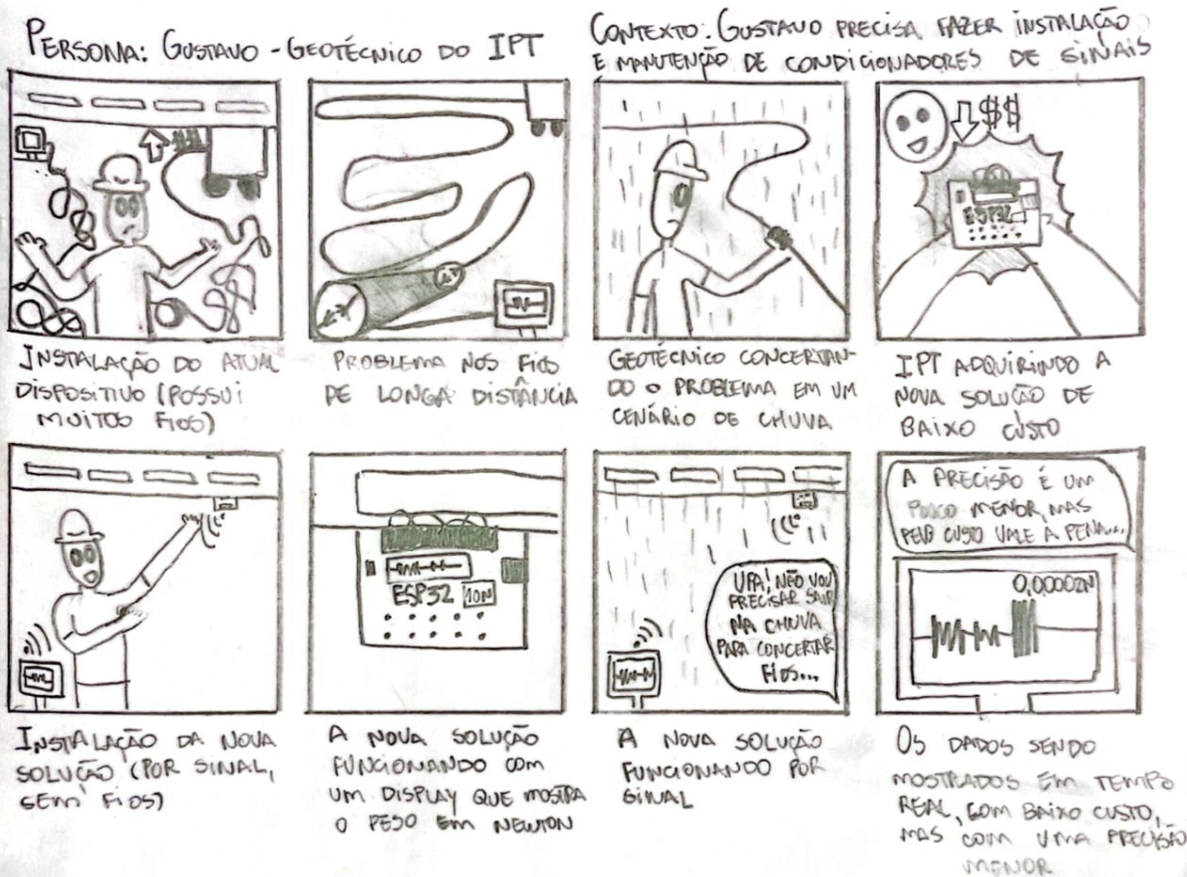 PERSONA: GUSTAVO - GEOTÉCNICO DO IPT
CONTEXTO: GUSTAVO PRECISA FAZER INSTALAÇÃO
E MANUTENÇÃO DE CONDICIONADORES DE SINAIS
$$$
INSTALAÇÃO DO ATUAL
DISPOSITIVO (POSSUI
MUITOS FIOS)
PROBLEMA NOS FIOS
DE LONGA DISTÂNCIA
GEOTÉCNICO CONCERTAN-
DO O PROBLEMA EM UM
CENÁRIO DE CHUVA
$$
ESP32
IPT ADQUIRINDO A
NOVA SOLUÇÃO DE
BAIXO CUSTO
INSTALAÇÃO DA NOVA
SOLUÇÃO (POR SINAL,
SEM FIOS)
ESP32 10N
A NOVA SOLUÇÃO
FUNCIONANDO COM
UM DISPLAY QUE MOSTRA
O PESO EM NEWTON
UFA! NÃO VOU
PRECISAR SAIR
NA CHUVA
PARA CONCERTAR
FIOS...
A NOVA SOLUÇÃO
FUNCIONANDO POR
SINAL
A PRECISÃO É UM
POUCO MENOR, MAS
PELO CUSTO VALE A PENA...
0,00002N
OS DADOS SENDO
MOSTRADOS EM TEMPO
REAL, COM BAIXO CUSTO,
MAS COM UMA PRECISÃO
MENOR